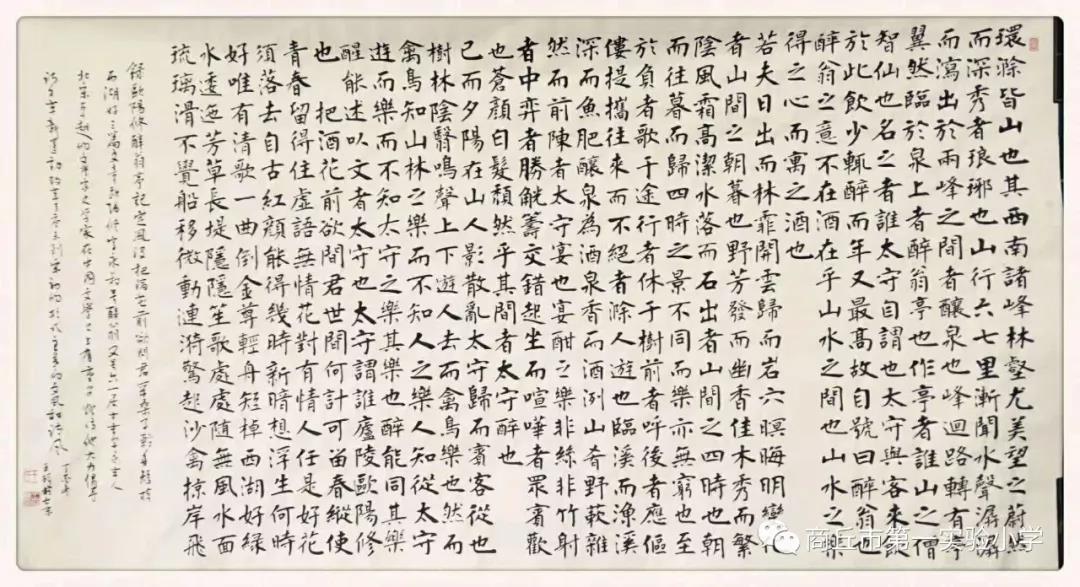 環滁皆山也其西南諸峰林壑尤美望之蔚然
而深秀者琅琊也山行六七里漸聞水聲潺潺
而瀉出於兩峰之間者釀泉也峰迴路轉有亭
翼然臨於泉上者醉翁亭也作亭者誰山之僧
智仙也名之者誰太守自謂也太守與客來飲
於此飲少輒醉而年又最高故自號曰醉翁也
醉翁之意不在酒在乎山水之間也山水之樂
得之心而寓之酒也
若夫日出而林霏開雲歸而岩穴暝晦明變化
者山間之朝暮也野芳發而幽香佳木秀而繁
陰風霜高潔水落而石出者山間之四時也朝
而往暮而歸四時之景不同而樂亦無窮也至
於負者歌于途行者休于樹前者呼後者應傴
僂提攜往來而不絕者滁人遊也臨溪而漁溪
深而魚肥釀泉為酒泉香而酒洌山肴野蔌雜
然而前陳者太守宴也宴酣之樂非絲非竹射
者中弈者勝觥籌交錯起坐而喧嘩者眾賓歡
也蒼顏白髮頹然乎其間者太守醉也
已而夕陽在山人影散亂太守歸而賓客從也
樹林陰翳鳴聲上下遊人去而禽鳥樂也然而
禽鳥知山林之樂而不知人之樂人知從太守
遊而樂而不知太守之樂其樂也醉能同其樂
醒能述以文者太守也太守謂誰廬陵歐陽修
也 把酒花前欲問君世間何計可留春縱使
青春留得住虛語無情花對有情人任是好花
須落去自古紅顏能得幾時新暗想浮生何時
好唯有清歌一曲倒金尊輕舟短棹西湖好綠
水逶迤芳草長堤隱隱笙歌處處隨無風水面
琉璃滑不覺船移微動漣漪驚起沙禽掠岸飛
錄歐陽修醉翁亭記定風波把酒花前欲問君
西湖好
北宋卓越的文學家文學家在中國文學上
商丘市第一实验小学